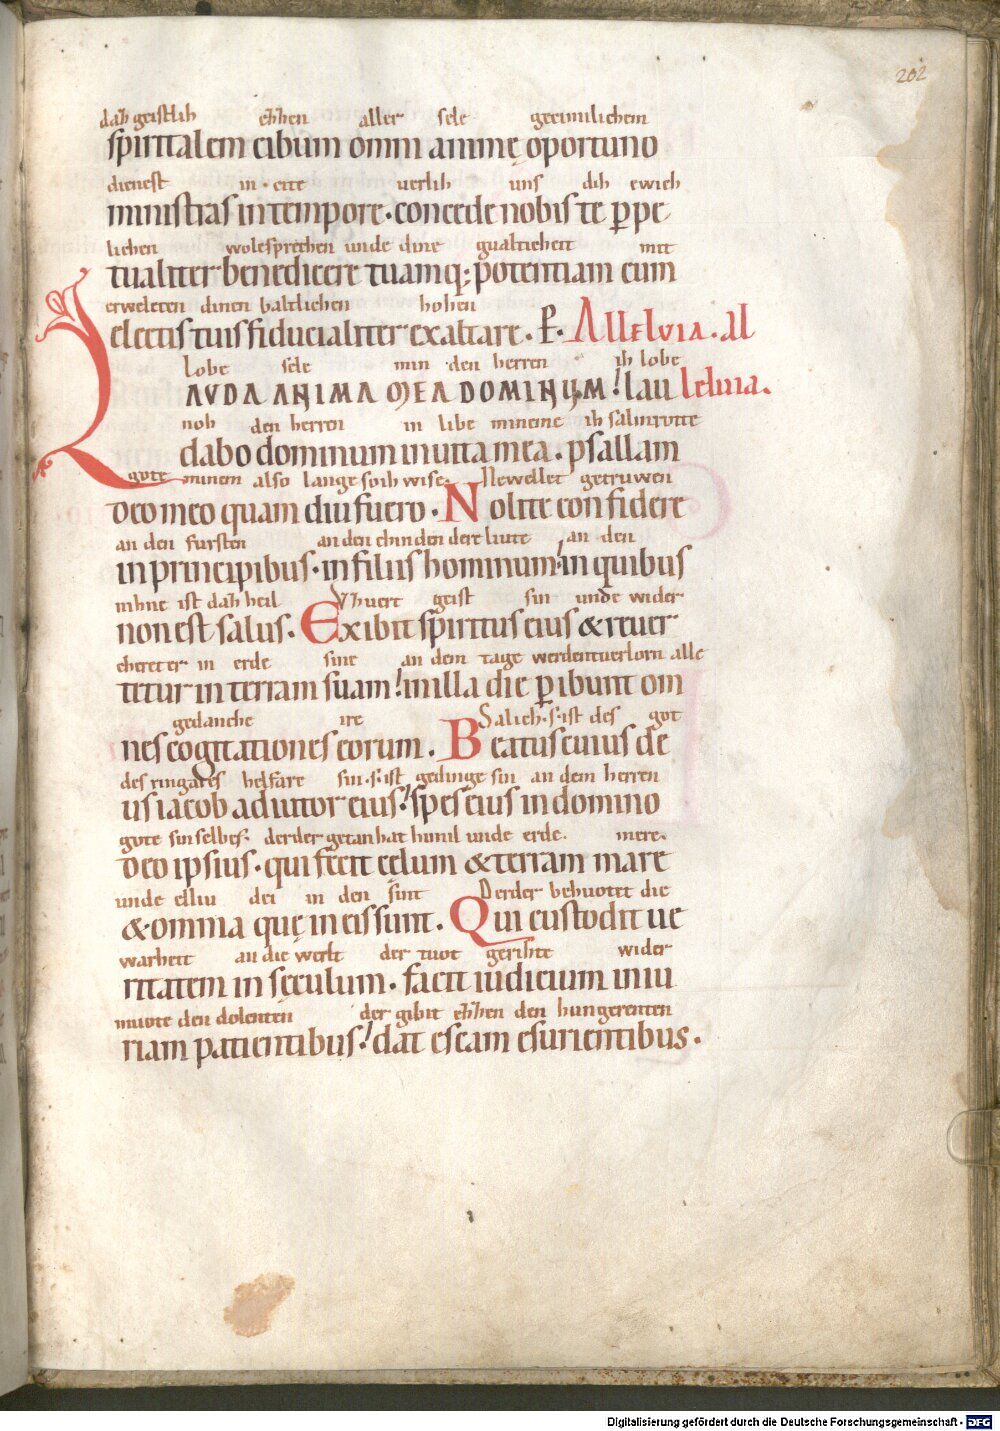 202
dah geistlih ehhen aller sele gecimlichem
spiritalem cibum omni animę oportuno
dienest in · cite uerlih uns dih ewich
ministras in tempore · concede nobis te ꝑpe
lichen wolesprechen unde dine gualticheit mit
tualiter benedicere tuamq; potentiam cum
erweleten dinen baltlichen hohen
electis tuis fiducialiter exaltare · P · Allelvia · al
lobe sele min den herren ih lobe
LAVDA ANIMA MEA DOMINUM! lau leluia.
noh den herren in libe mineme ih salmrotte
dabo dominum in uita mea · psallam
gote minem also lange so ih wise. Newellet getruwen
deo meo quam diu fuero · Nolite confidere
an den fursten an den chinden dere liute an den
in principibus · in filiis hominum! in quibus
nihne ist dah heil Vhuert geist sin unde wider
non est salus · Exibit spiritus eius & reuer
cheret er in erde sine an dem tage werdent uerlorn alle
tetur in terram suam! in illa die ꝑibunt om
gedanche ire Salich · s · ist des got
nes cogitationes eorum · Beatus cuius de
des ringares helfare sin · s · ist gedinge sin an dem herren
us iacob adiutor eius! spes eius in domino
gote sin selbes. der der getan hat himil unde erde. mere.
deo ipsius · qui fecit cęlum & terram mare
unde elliu dei in den sint Der der behuotet die
& omnia quę in eis sunt. Qui custodit ue
warheit an die werlt der tuot gerihte wider
ritatem in sęculum · facit iudicium iniu
muote den dolenten der gibit ehhen den hungerenten
riam patientibus! dat escam esurientibus ·
Digitalisierung gefördert durch die Deutsche Forschungsgemeinschaft - DFG